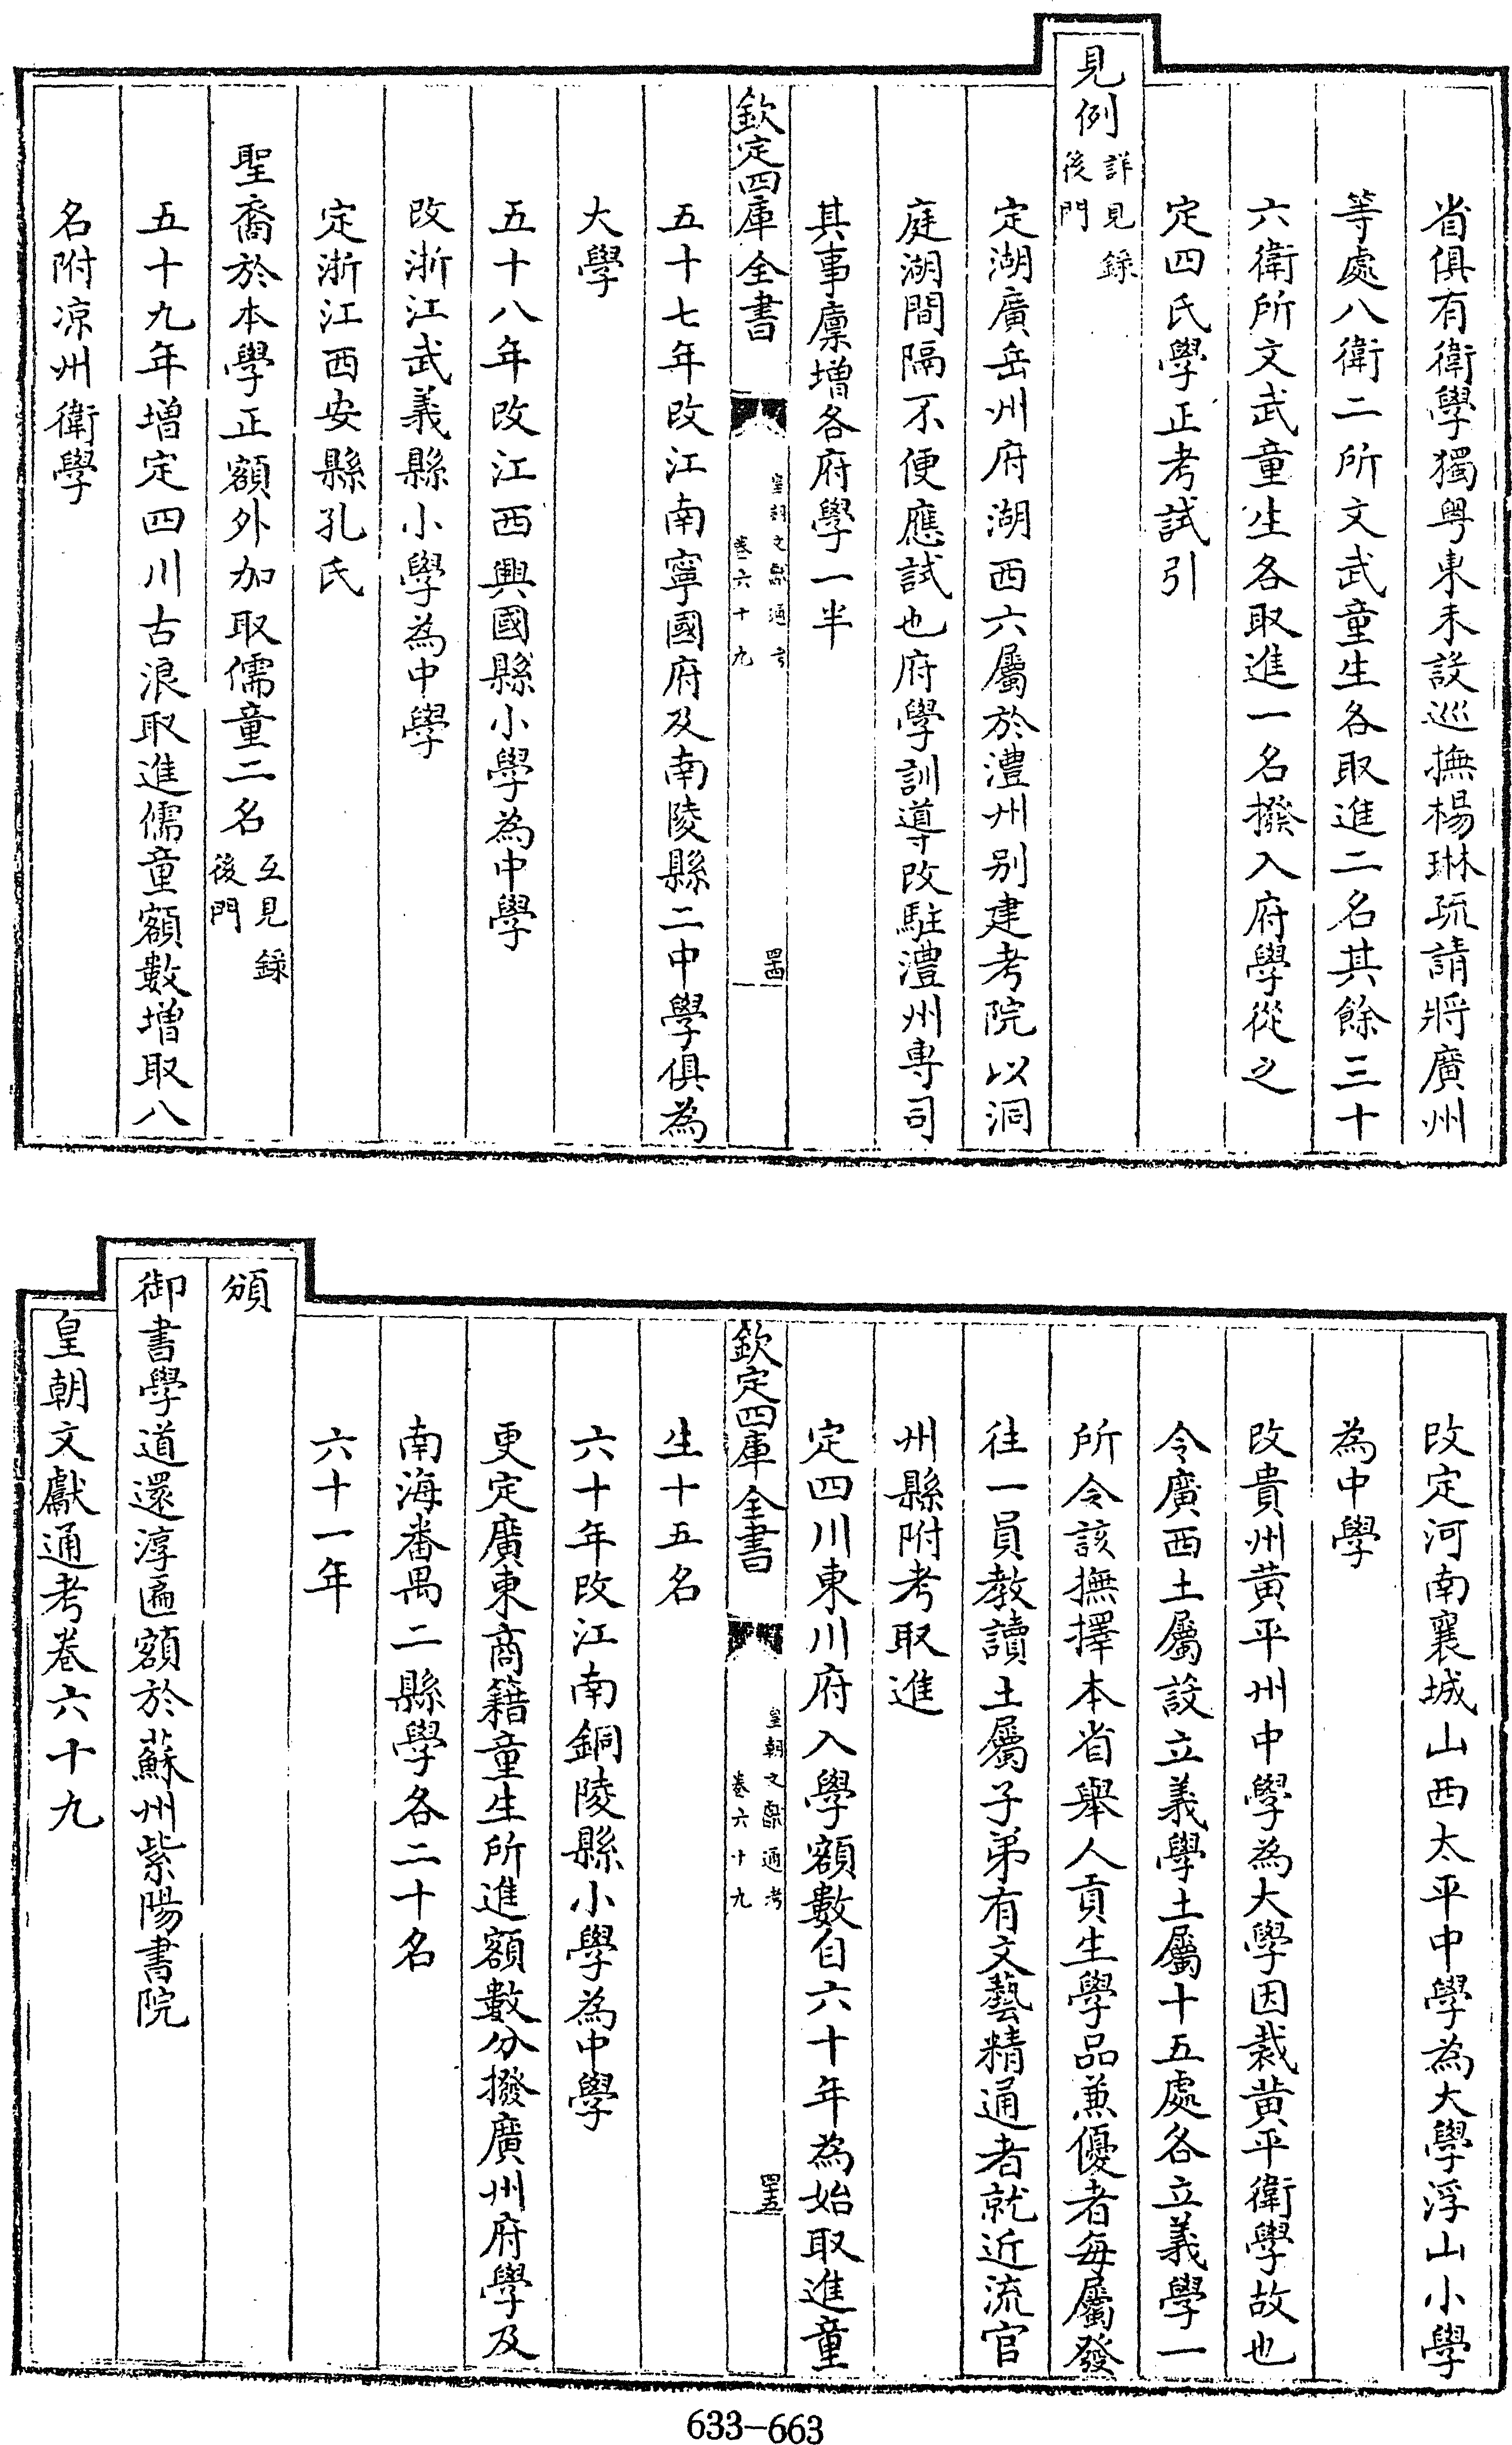 省俱有衛學獨粤東未設巡撫楊琳疏請將廣州
等處八衛二所文武童生各取進二名其餘三十
六衛所文武童生各取進一名撥入府學從之
定四氏學正考試引
見例詳見録後門
定湖廣岳州府湖西六屬於澧州别建考院以洞
庭湖間隔不便應試也府學訓導改駐澧州專司
其事廩增各府學一半
欽定四庫全書 皇朝文獻通考 卷六十九 四十四
五十七年改江南寧國府及南陵縣二中學俱為
大學
五十八年改江西興國縣小學為中學
改浙江武義縣小學為中學
定浙江西安縣孔氏
聖裔於本學正額外加取儒童二名互見録後門
五十九年增定四川古浪取進儒童額數增取八
名附凉州衛學
改定河南襄城山西太平中學為大學浮山小學
為中學
改貴州黄平州中學為大學因裁黄平衛學故也
令廣西土屬設立義學土屬十五處各立義學一
所令該撫擇本省舉人貢生學品兼優者每屬發
往一員教讀土屬子弟有文藝精通者就近流官
州縣附考取進
定四川東川府入學額數自六十年為始取進童
欽定四庫全書 皇朝文獻通考 卷六十九 四十五
生十五名
六十年改江南銅陵縣小學為中學
更定廣東商籍童生所進額數分撥廣州府學及
南海番禺二縣學各二十名
六十一年
頒
御書學道還淳匾額於蘇州紫陽書院
皇朝文獻通考卷六十九
633-663